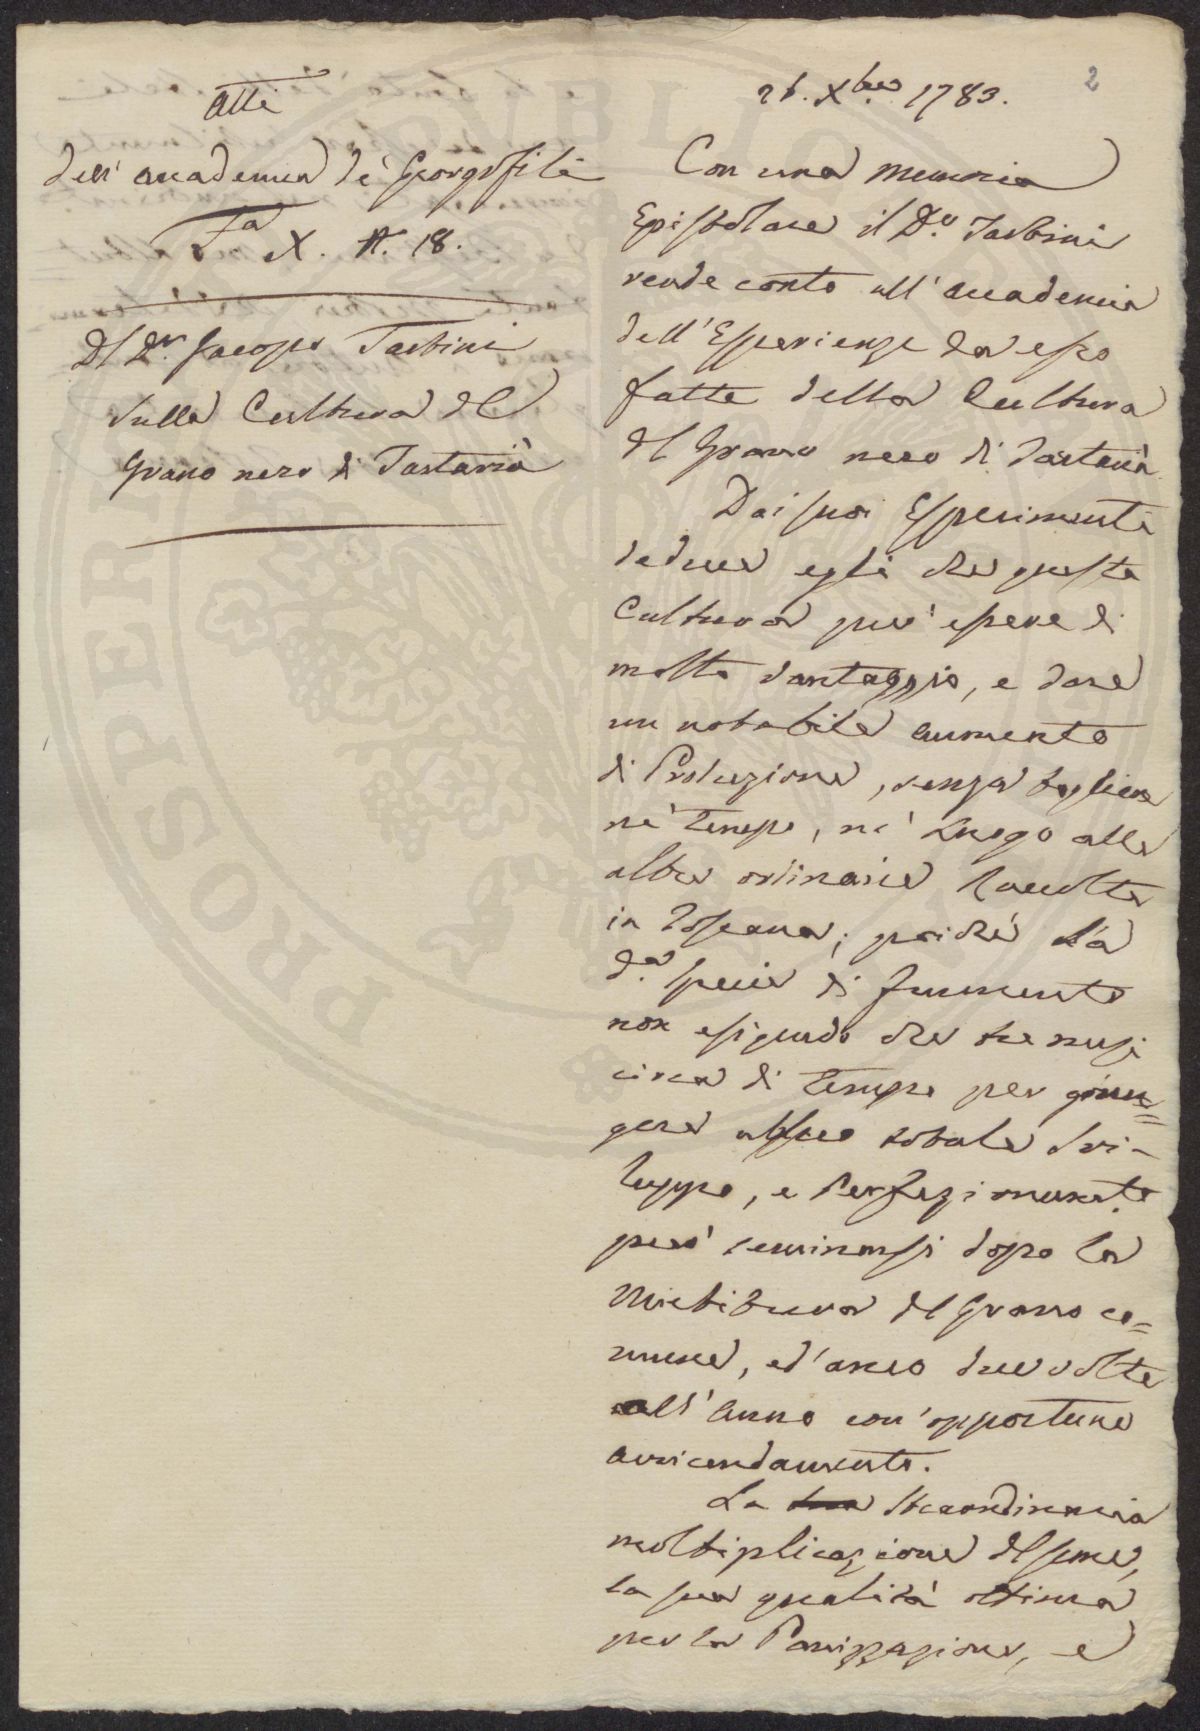 2
Atti
dell'accademia de' Georgofili
T.a X. N. 18.
Del D.r Jacopo Tartini
Sulla Cultura del
Grano nero di Tartaria
Xbre 1783.
Con una memoria
Epistolare il D.e Tartini
rende conto all'accademia
dell'Esperienze da esso
fatte della Cultura
del Grano nero di Tartaria
Dai suoi Esperimenti
deduce egli che questa
Cultura può essere di
molto vantaggio, e dare
un notabile aumento
di Produzione, senza togliere
nè tempo, nè luogo alle
altre ordinarie Raccolte
in Toscana; poichè la
d.a specie di frumento
non esigendo che tre mesi
circa di tempo per giun=
gere al suo totale svi-
luppo, e Perfezionamento
può seminarsi dopo la
Mietitura del Grano co=
mune, ed anco due volte
all'anno con opportuno
avvicendamento.
La straordinaria
moltiplicazione del seme,
la sua qualità ottima
per la Panizzazione, e
PROSPERITATI
PVBLICAE